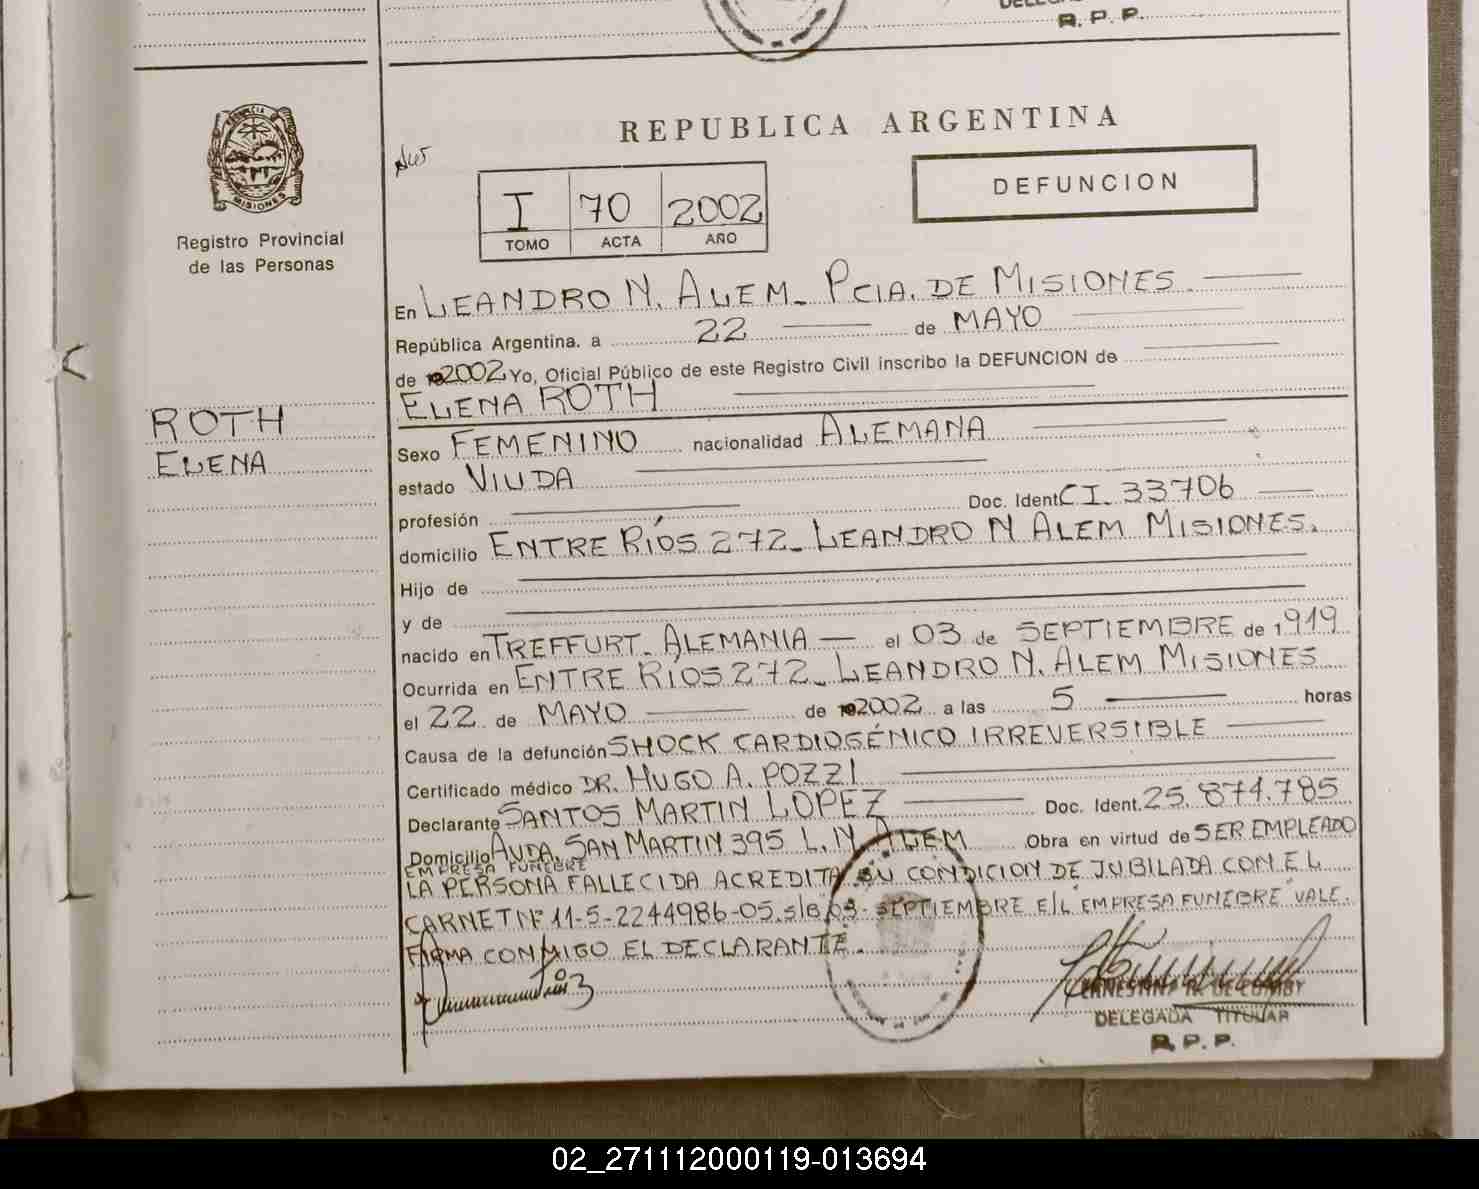 R. P. P.
PROVINCIA
MISIONES
Registro Provincial
de las Personas
REPUBLICA ARGENTINA
I 70 2002
TOMO ACTA AÑO
DEFUNCION
En LEANDRO N. ALEM. PCIA. DE MISIONES.
República Argentina. a 22 de MAYO
de 2002 Yo, Oficial Público de este Registro Civil inscribo la DEFUNCION de
ELENA ROTH
ROTH
ELENA
Sexo FEMENINO nacionalidad ALEMANA
estado VIUDA
profesión Doc. Ident CI. 33706
domicilio ENTRE RÍOS 272. LEANDRO N ALEM MISIONES.
Hijo de
y de
nacido en TREFFURT. ALEMANIA el 03 de SEPTIEMBRE de 1919
Ocurrida en ENTRE RÍOS 272. LEANDRO N. ALEM MISIONES
el 22 de MAYO de 2002 a las 5 horas
Causa de la defunción SHOCK CARDIOGÉNICO IRREVERSIIBLE
Certificado médico DR. HUGO A. POZZI
Declarante SANTOS MARTIN LOPEZ Doc. Ident. 25.874.785
Domicilio AVDA. SAN MARTIN 395 L. N. ALEM Obra en virtud de SER EMPLEADO
EMPRESA FUNEBRE
LA PERSONA FALLECIDA ACREDITA SU CONDICION DE JUBILADA CON EL
CARNET Nº 11-5-2244986-05. S/B 03- SEPTIEMBRE E/L "EMPRESA FUNEBRE" VALE.
FIRMA CONMIGO EL DECLARANTE.
DELEGADA TITULAR
R. P. P.
02_271112000119-013694